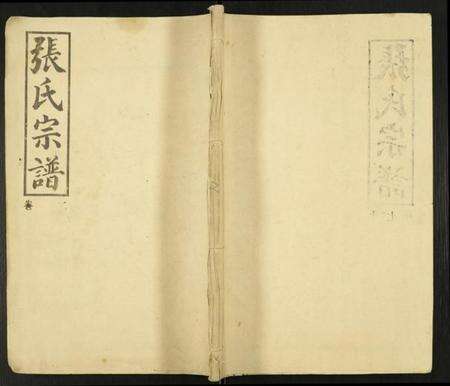 張氏宗譜
卷
張氏宗譜